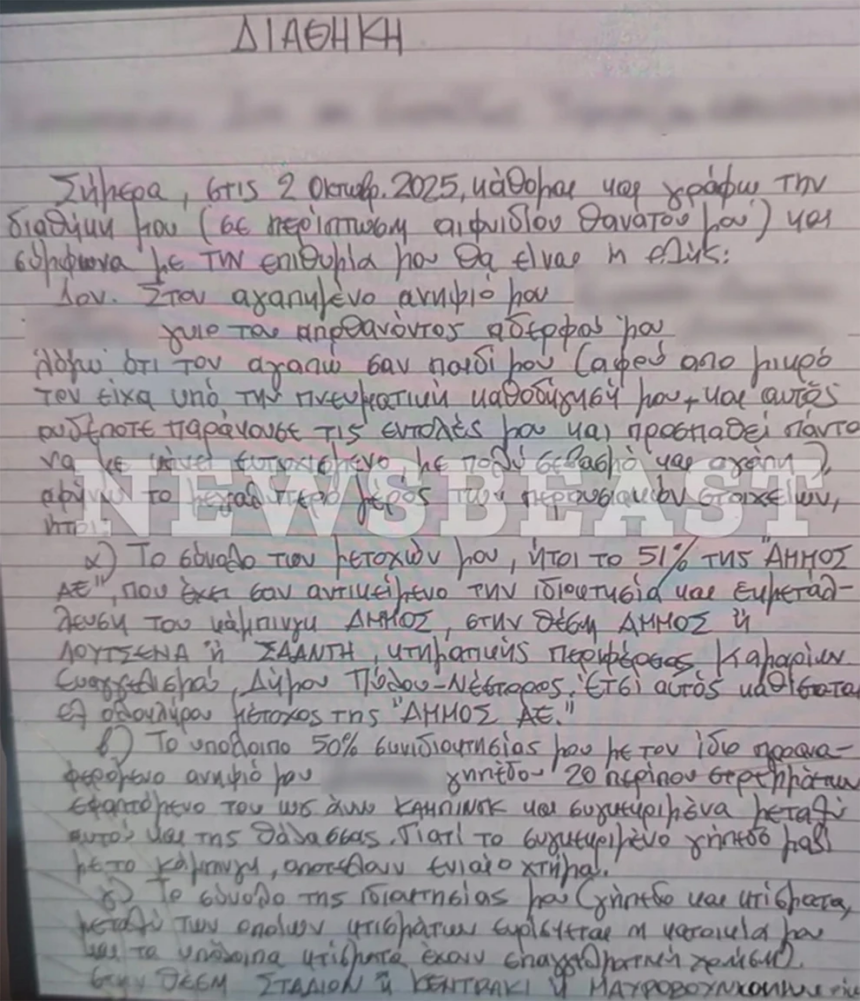 ΔΙΑΘΗΚΗ
Σήμερα, στις 2 Οκτωβρ. 2025, κάθομαι και γράφω την
διαθήκη μου (σε περίπτωση αιφνιδίου θανάτου μου) και
σύμφωνα με την επιθυμία μου θα είναι η εξής:
1ον. Στον αγαπημένο ανηψιό μου
γυιο του αποθανόντος αδερφού μου
λόγω ότι τον αγαπώ σαν παιδί μου (αφού απο μικρό
τον είχα υπό την πνευματική καθοδήγησή μου, και αυτός
ουδέποτε παράκουσε τις εντολές μου και προσπαθεί πάντα
να με κάνει ευτυχισμένο, με πολύ σεβασμό και αγάπη),
αφήνω το μεγαλύτερο μέρος των περουσιακών στοιχείων,
ήτοι:
NEWSBEAST
α) Το σύνολο των μετοχών μου, ήτοι το 51% της "ΑΜΜΟΣ
ΑΕ", που έχει σαν αντικείμενο την ιδιοκτησία και εκμετάλ-
λευση του κάμπινγκ ΑΜΜΟΣ, στην θέση ΑΜΜΟΣ ή
ΛΟΥΤΣΕΝΑ ή ΣΑΑΝΤΗ, κτηματικής περιφέρειας Καμαρίων
Ευαγγελισμού, Δήμου Πύλου-Νέστορος. Έτσι αυτός καθίσταται
εξ ολοκλήρου μέτοχος της "ΑΜΜΟΣ ΑΕ."
β) Το υπόλοιπο 50% συνιδιοκτησίας μου με τον ίδιο προανα-
φερόμενο ανηψιό μου γηπέδου 20 περίπου στρεμμάτων
εφαπτόμενο του ως άνω ΚΑΜΠΙΝΓΚ και συγκεκριμένα μεταξύ
αυτού και της θάλασσας. Γιατί το συγκεκριμένο γήπεδο μαζί
με το κάμπινγκ, αποτελούν ενιαίο χτήμα.
γ) Το σύνολο της ιδιοκτησίας μου (γήπεδο και κτίσματα,
μεταξύ των οποίων κτισμάτων ευρίσκεται η κατοικία μου
και τα υπόλοιπα κτίσματα έχουν επαγγελματική χρήση)
στην θέση ΣΤΑΔΙΟΝ ή ΚΕΝΤΡΑΚΙ ή